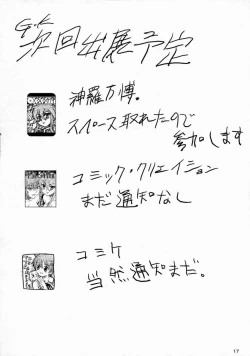 G.K
次回出展予定
神羅万博。
スペース取れたので
参加します
コミック・クリエイション
まだ通知なし
コミケ
当然通知まだ。
17